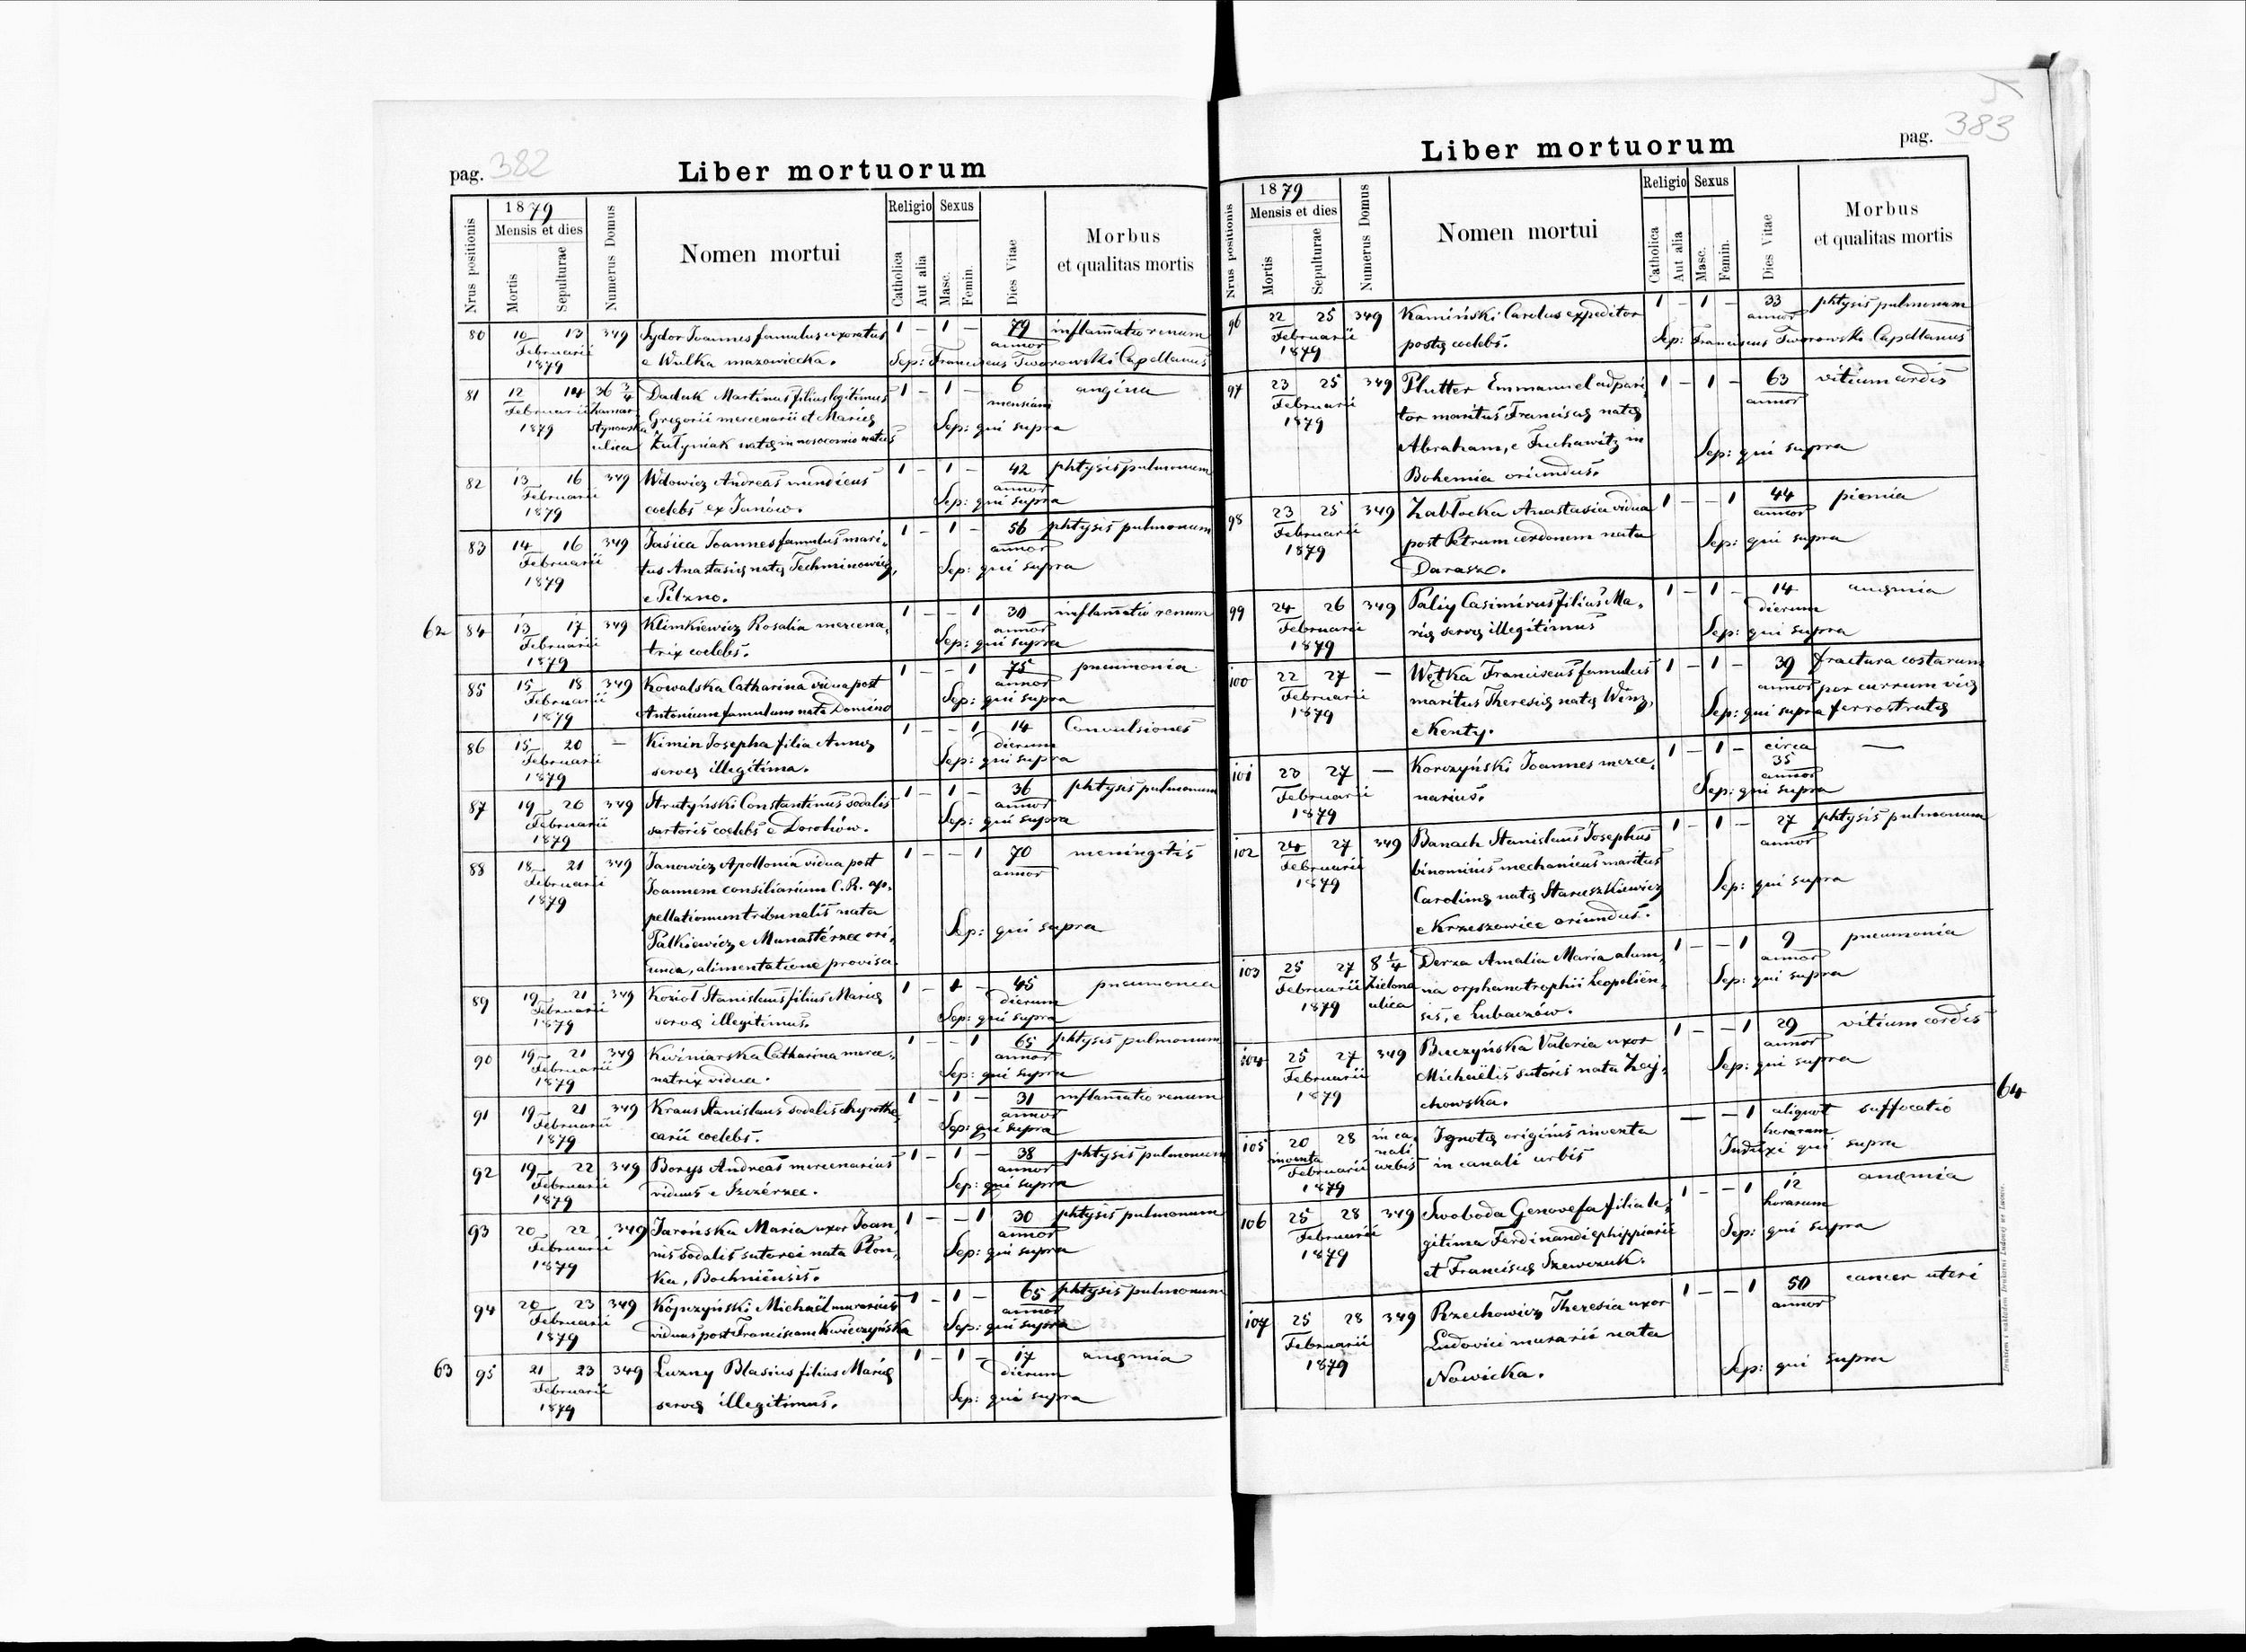 pag. 382
Liber mortuorum
Nrus positionis
1879
Mensis et dies
Mortis
Sepulturae
Numerus Domus
Nomen mortui
Religio
Catholica
Aut alia
Sexus
Masc.
Femin.
Dies Vitae
Morbus
et qualitas mortis
80 10 13 349 Sydor Joannes famulus uxoratus 1 – 1 – 79 inflam̅atio renum
Februarii e Wulka mazowiecka. annor
1879 Sep: Franciscus Tworowski Capellanus
81 12 14 36 3/4 Daduk Martinus filius legitimus 1 – 1 – 6 angina
Februarii Gregorii mercenarii et Mariæ mensium
1879 ulica Żułyniak natæ in nosocomio natus Sep: qui supra
82 13 16 349 Wdowicz Andreas mendicus 1 – 1 – 42 phtysis pulmonum
Februarii coelebs ex Janów. annor
1879 Sep: qui supra
83 14 16 349 Jasica Joannes famulus mari- 1 – 1 – 56 phtysis pulmonum
Februarii tus Anastasiæ natæ Techminowicz, annor
1879 e Pilzno. Sep: qui supra
62 84 13 17 349 Klimkiewicz Rosalia mercena- 1 – – 1 30 inflam̅atio renum
Februarii trix coelebs. annor
1879 Sep: qui supra
85 15 18 349 Kowalska Catharina vidua post 1 – – 1 75 pneumonia
Februarii Antonium famulum nata Domino annor
1879 Sep: qui supra
86 15 20 – Kimin Josepha filia Annæ 1 – – 1 14 Convulsiones
Februarii servæ illegitima. dierum
1879 Sep: qui supra
87 19 20 349 Strutyński Constantinus sodalis 1 – 1 – 36 phtysis pulmonum
Februarii sartoris coelebs e Dorohów. annor
1879 Sep: qui supra
88 18 21 349 Janowicz Apollonia vidua post 1 – – 1 70 meningitis
Februarii Joannem consiliarium C.R. ap- annor
1879 pellationum tribunalis nata
Palkiewicz e Munasterzec ori- Sep: qui supra
unda, alimentatione provisa.
89 19 21 349 Kozioł Stanislaus filius Mariæ 1 – 1 – 45 pneumonia
Februarii servæ illegitimus. dierum
1879 Sep: qui supra
90 19 21 349 Kwiniarska Catharina merce- 1 – – 1 65 phtysis pulmonum
Februarii natrix vidua. annor
1879 Sep: qui supra
91 19 21 349 Kraus Stanislaus sodalis chyrothe- 1 – 1 – 31 inflam̅atio renum
Februarii carii coelebs. annor
1879 Sep: qui supra
92 19 22 349 Borys Andreas mercenarius 1 – 1 – 38 phtysis pulmonum
Februarii viduus e Szczérzec. annor
1879 Sep: qui supra
93 20 22 349 Jarońska Maria uxor Joan- 1 – – 1 30 phtysis pulmonum
Februarii nis sodalis sutorei nata Płon- annor
1879 ka, Bochniensis. Sep: qui supra
94 20 23 349 Kopczyński Michaël murarius 1 – 1 – 65 phtysis pulmonum
Februarii viduus post Franciscam Kwieczyńska annor
1879 Sep: qui supra
63 95 21 23 349 Luzny Blasius filius Mariæ 1 – 1 – 17 anæmia
Februarii servæ illegitimus. dierum
1879 Sep: qui supra
Liber mortuorum
pag. 383
Nrus positionis
1879
Mensis et dies
Mortis
Sepulturae
Numerus Domus
Nomen mortui
Religio
Catholica
Aut alia
Sexus
Masc.
Femin.
Dies Vitae
Morbus
et qualitas mortis
96 22 25 349 Kamiński Carolus expeditor 1 – 1 – 33 phtysis pulmonum
Februarii postæ coelebs. annor
1879 Sep: Franciscus Tworowski Capellanus
97 23 25 349 Plutter Emmanuel adpari- 1 – 1 – 63 vitium cordis
Februarii tor maritus Franciscæ natæ annor
1879 Abraham, e Tuchawitz in Sep: qui supra
Bohemia oriundus.
98 23 25 349 Zabłocka Anastasia vidua 1 – – 1 44 piemia
Februarii post Petrum cerdonem nata annor
1879 Darasz. Sep: qui supra
99 24 26 349 Paliy Casimirus filius Ma- 1 – 1 – 14 anæmia
Februarii riæ servæ illegitimus dierum
1879 Sep: qui supra
100 22 27 – Wętka Franciscus famulus 1 – 1 – 39 fractura costarum
Februarii maritus Theresiæ natæ Winz, annor per currum viæ
1879 e Kenty. Sep: qui supra ferrostratæ
101 23 27 – Korczyński Joannes merce- 1 – 1 – circa –
Februarii narius. 35 annor
1879 Sep: qui supra
102 24 27 349 Banach Stanislaus Josephus 1 – 1 – 27 phtysis pulmonum
Februarii binominus mechanicus maritus annor
1879 Carolinæ natæ Staruszkiewicz Sep: qui supra
e Krzeszowice oriundus.
103 25 27 8 1/4 Derza Amalia Maria alum- 1 – – 1 9 pneumonia
Februarii Zielona na orphanotrophii Leopolien- annor
1879 ulica sis, e Lubaczów. Sep: qui supra
104 25 27 349 Buczyńska Valeria uxor 1 – – 1 29 vitium cordis
Februarii Michaëlis sutoris nata Zaj- annor
1879 chowska. Sep: qui supra
64
105 20 28 in ca- Ignotæ originis inventa — – 1 aliquot suffocatio
inventa nali in canali urbis horarum
Februarii urbis Induxi qui supra
1879
106 25 28 349 Swoboda Genovefa filia le- 1 – – 1 12 anæmia
Februarii gitima Ferdinandi ephippiarii horarum
1879 et Franciscæ Szewczuk. Sep: qui supra
107 25 28 349 Rzechowicz Theresia uxor 1 – – 1 50 cancer uteri
Februarii Ludovici murarii nata annor
1879 Nowicka. Sep: qui supra